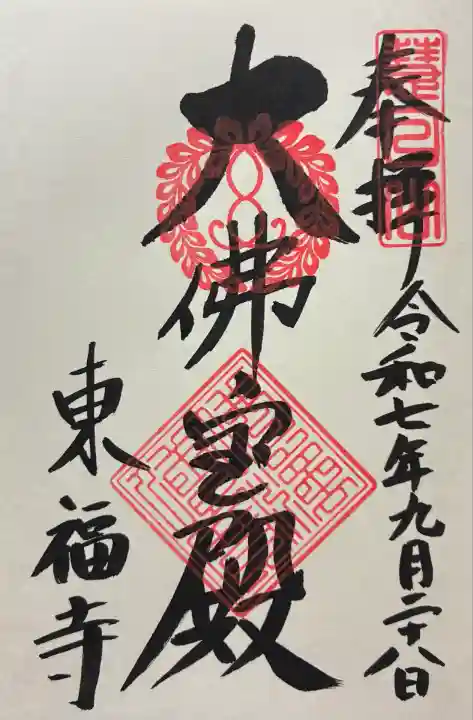 奉拝 令和七年九月二十八日
大佛宝殿
東福寺